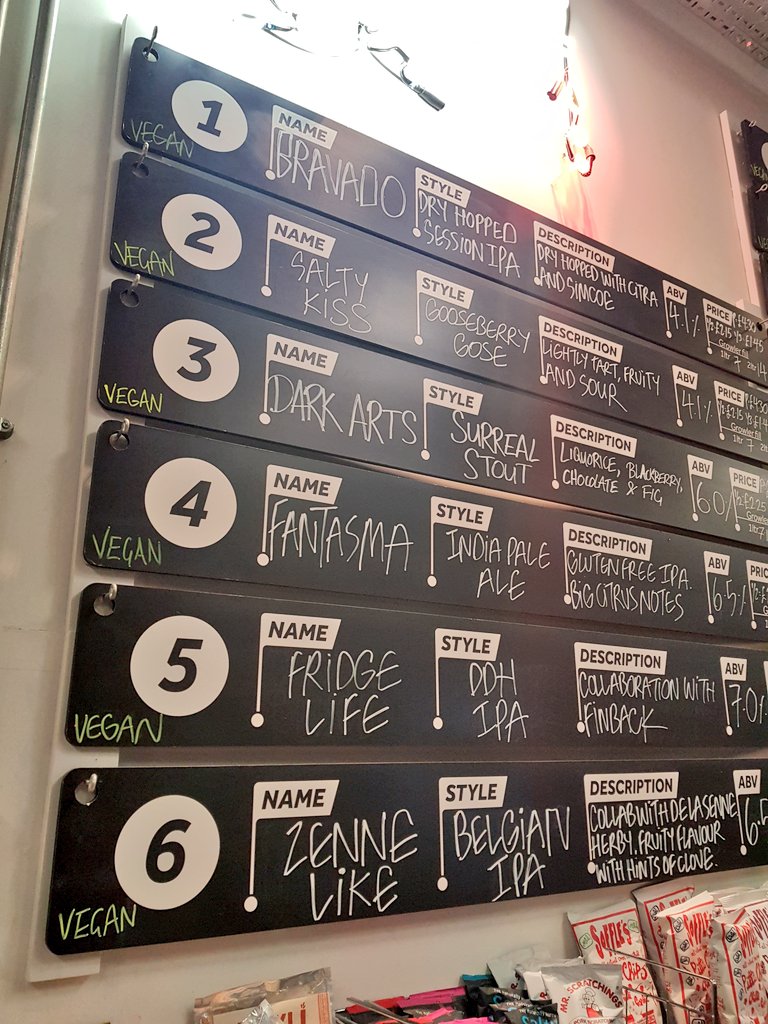 1
VEGAN
NAME
BRAVADO
STYLE
DRY HOPPED
SESSION IPA
DESCRIPTION
DRY HOPPED WITH CITRA
AND SIMCOE
ABV
4.1%
PRICE
Growler fill
2
VEGAN
NAME
SALTY
KISS
STYLE
GOOSEBERRY
GOSE
DESCRIPTION
LIGHTLY TART, FRUITY
AND SOUR
ABV
4.1%
PRICE
Growler fill
3
VEGAN
NAME
DARK ARTS
STYLE
SURREAL
STOUT
DESCRIPTION
LIQUORICE, BLACKBERRY,
CHOCOLATE & FIG
ABV
6.0%
PRICE
4
VEGAN
NAME
FANTASMA
STYLE
INDIA PALE
ALE
DESCRIPTION
GLUTEN FREE IPA.
BIG CITRUS NOTES
ABV
6.5%
5
VEGAN
NAME
FRIDGE
LIFE
STYLE
DDH
IPA
DESCRIPTION
COLLABORATION WITH
FINBACK
ABV
7.0%
6
VEGAN
NAME
ZENNE
LIKE
STYLE
BELGIAN
IPA
DESCRIPTION
COLLAB WITH DE LA SENNE
HERBY, FRUITY FLAVOUR
WITH HINTS OF CLOVE.
ABV
SOFFLE'S
MR. SCRATCHINGS